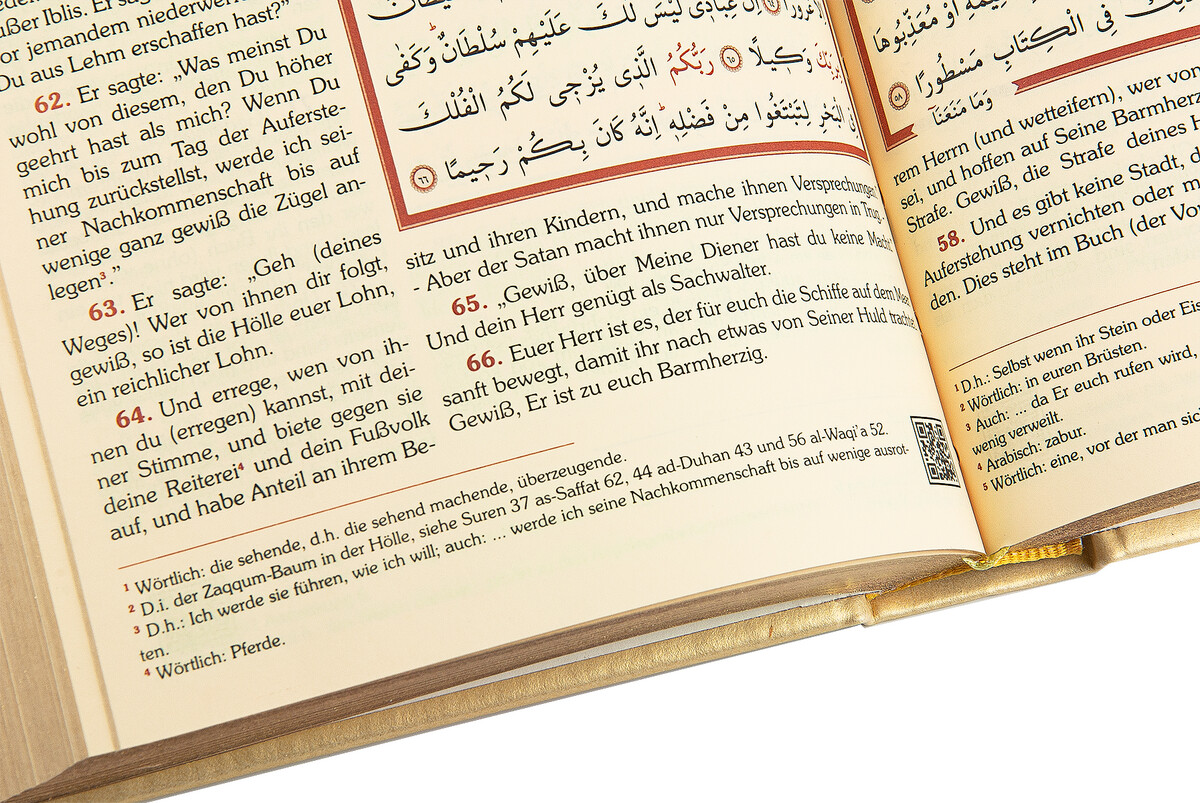 ußer Iblis. Er sag
or jemandem niederwer
Du aus Lehm erschaffen hast?“
62. Er sagte: „Was meinst Du
wohl von diesem, den Du höher
geehrt hast als mich? Wenn Du
mich bis zum Tag der Auferste-
hung zurückstellst, werde ich sei-
ner Nachkommenschaft bis auf
wenige ganz gewiß die Zügel an-
legen³.”
63. Er sagte: „Geh (deines
Weges)! Wer von ihnen dir folgt,
gewiß, so ist die Hölle euer Lohn,
ein reichlicher Lohn.
64. Und errege, wen von ih-
nen du (erregen) kannst, mit dei-
ner Stimme, und biete gegen sie
deine Reiterei⁴ und dein Fußvolk
auf, und habe Anteil an ihrem Be-
اِنَّ عِبَادٖى لَيْسَ لَكَ عَلَيْهِمْ سُلْطَانٌ وَكَفٰى
وَكٖيلًا ٦٥ رَبُّكُمُ الَّذٖى يُزْجٖى لَكُمُ الْفُلْكَ
الْبَحْرِ لِتَبْتَغُوا مِنْ فَضْلِهٖ اِنَّهُ كَانَ بِكُمْ رَحٖيمًا ٦٦
sitz und ihren Kindern, und mache ihnen Versprechungen.”
- Aber der Satan macht ihnen nur Versprechungen in Trug -.
65. „Gewiß, über Meine Diener hast du keine Macht.”
Und dein Herr genügt als Sachwalter.
66. Euer Herr ist es, der für euch die Schiffe auf dem Meer
sanft bewegt, damit ihr nach etwas von Seiner Huld trachtet.
Gewiß, Er ist zu euch Barmherzig.
¹ Wörtlich: die sehende, d.h. die sehend machende, überzeugende.
² D.i. der Zaqqum-Baum in der Hölle, siehe Suren 37 as-Saffat 62, 44 ad-Duhan 43 und 56 al-Waqi’a 52.
³ D.h.: Ich werde sie führen, wie ich will; auch: ... werde ich seine Nachkommenschaft bis auf wenige ausrot-
ten.
⁴ Wörtlich: Pferde.
اَوْ مُعَذِّبُوهَا
فِى الْكِتَابِ مَسْطُورًا ٥٨
وَمَا مَنَعَنَا
rem Herrn (und wetteifern), wer von
sei, und hoffen auf Seine Barmherz
Strafe. Gewiß, die Strafe deines H
58. Und es gibt keine Stadt, d
Auferstehung vernichten oder m
den. Dies steht im Buch (der Vo
¹ D.h.: Selbst wenn ihr Stein oder Eis
² Wörtlich: in euren Brüsten.
³ Auch: ... da Er euch rufen wird,
wenig verweilt.
⁴ Arabisch: zabur.
⁵ Wörtlich: eine, vor der man sic